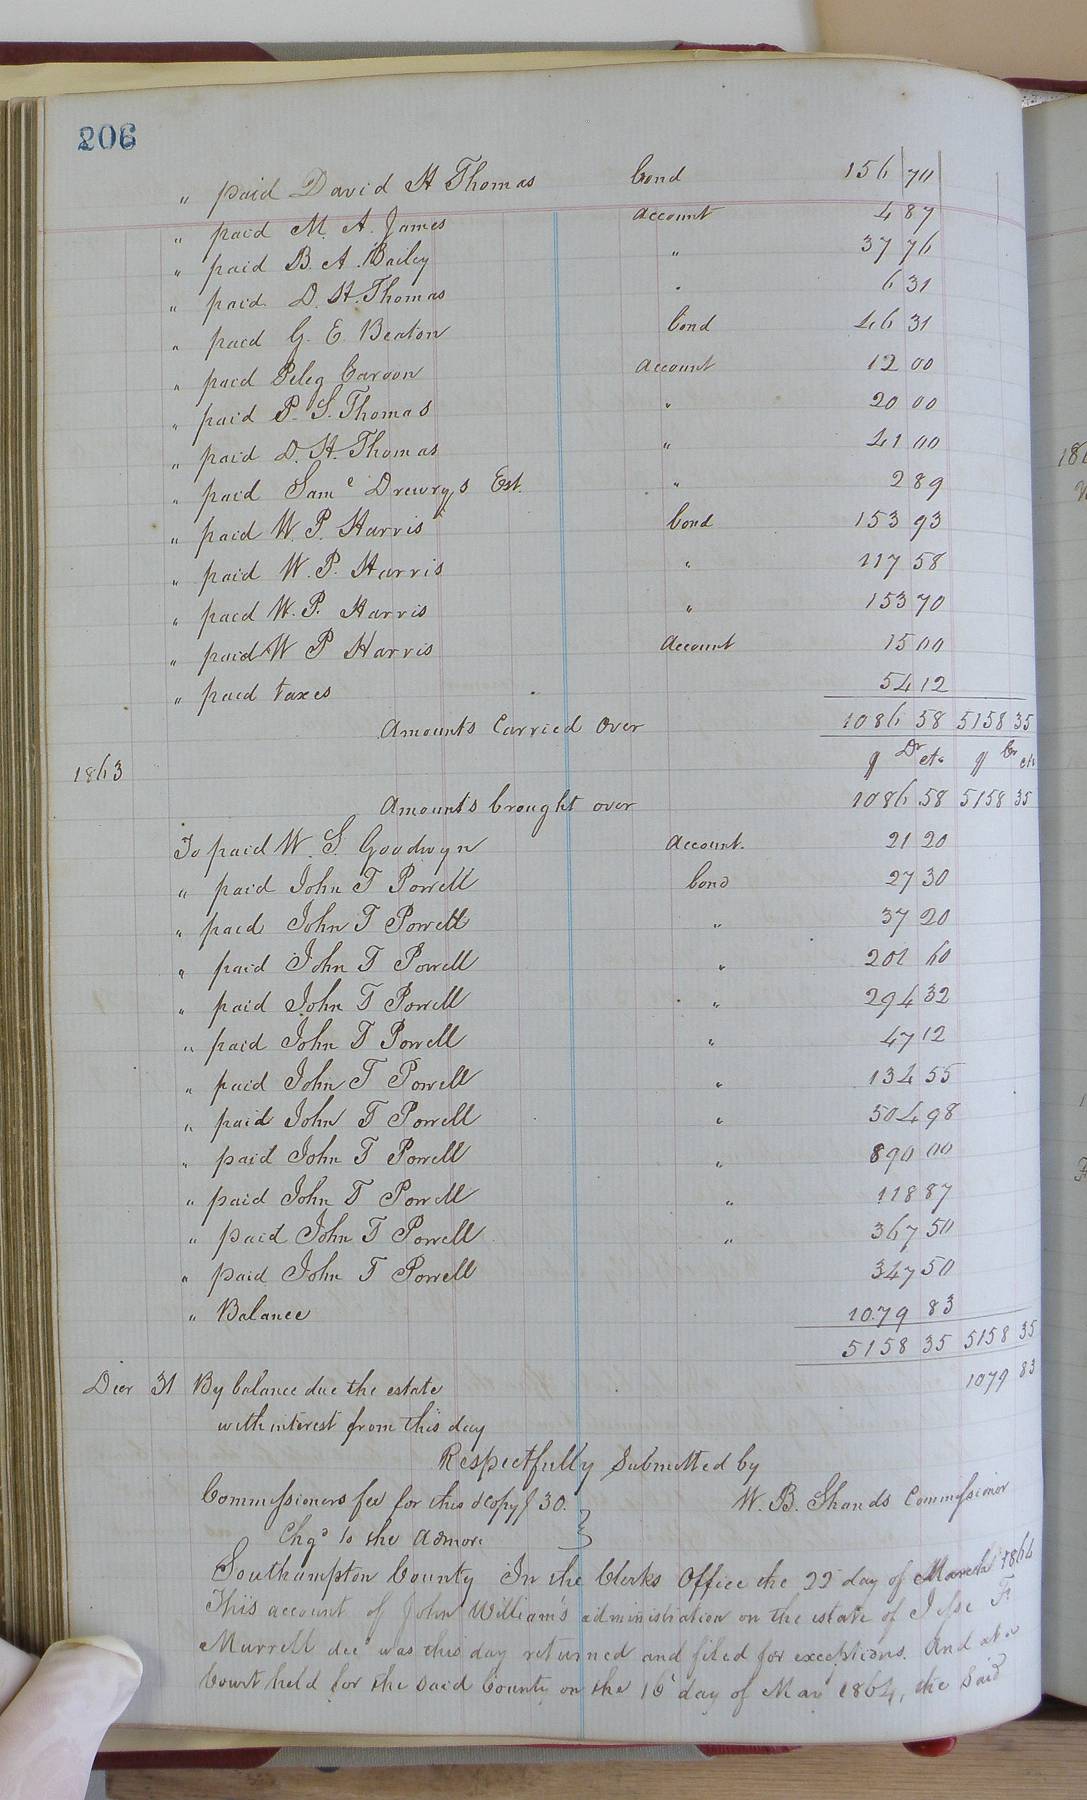 206
" paid David H Thomas bond 156 70
" paid M. A. James account 4 87
" paid B. A. Bailey " 37 76
" paid D. H. Thomas " 6 31
" paid G. E. Beaton bond 46 31
" paid Peleg Carson account 12 00
" paid P. S. Thomas " 20 00
" paid D. H. Thomas " 41 00
" paid Saml Drewrys Est. " 2 89
" paid W. P. Harris bond 153 93
" paid W. P. Harris " 117 58
" paid W. P. Harris " 153 70
" paid W P Harris account 15 00
" paid taxes 54 12
Amounts Carried Over 1086 58 5158 35
1863 $ Dr cts $ Cr cts
Amounts brought over 1086 58 5158 35
To paid W. S. Goodwyn account. 21 20
" paid John T Powell bond 27 30
" paid John T Powell " 37 20
" paid John T Powell " 201 60
" paid John T Powell " 294 32
" paid John T Powell " 47 12
" paid John T Powell " 134 55
" paid John T Powell " 504 98
" paid John T Powell " 890 00
" paid John T Powell " 118 87
" paid John T Powell " 367 50
" paid John T Powell 347 50
" Balance 1079 83
5158 35 5158 35
Decr 31 By balance due the estate 1079 83
with interest from this day
Respectfully Submitted by
Commissioners fee for this & copy $ 30. W. B. Shands Commissioner
Chgd to the Admor.
Southampton County In the Clerks Office the 22 day of March 1864
This account of John William's administration on the estate of Jesse F.
Murrell decd was this day returned and filed for exceptions. And at a
Court held for the said County on the 16 day of May 1864, the said